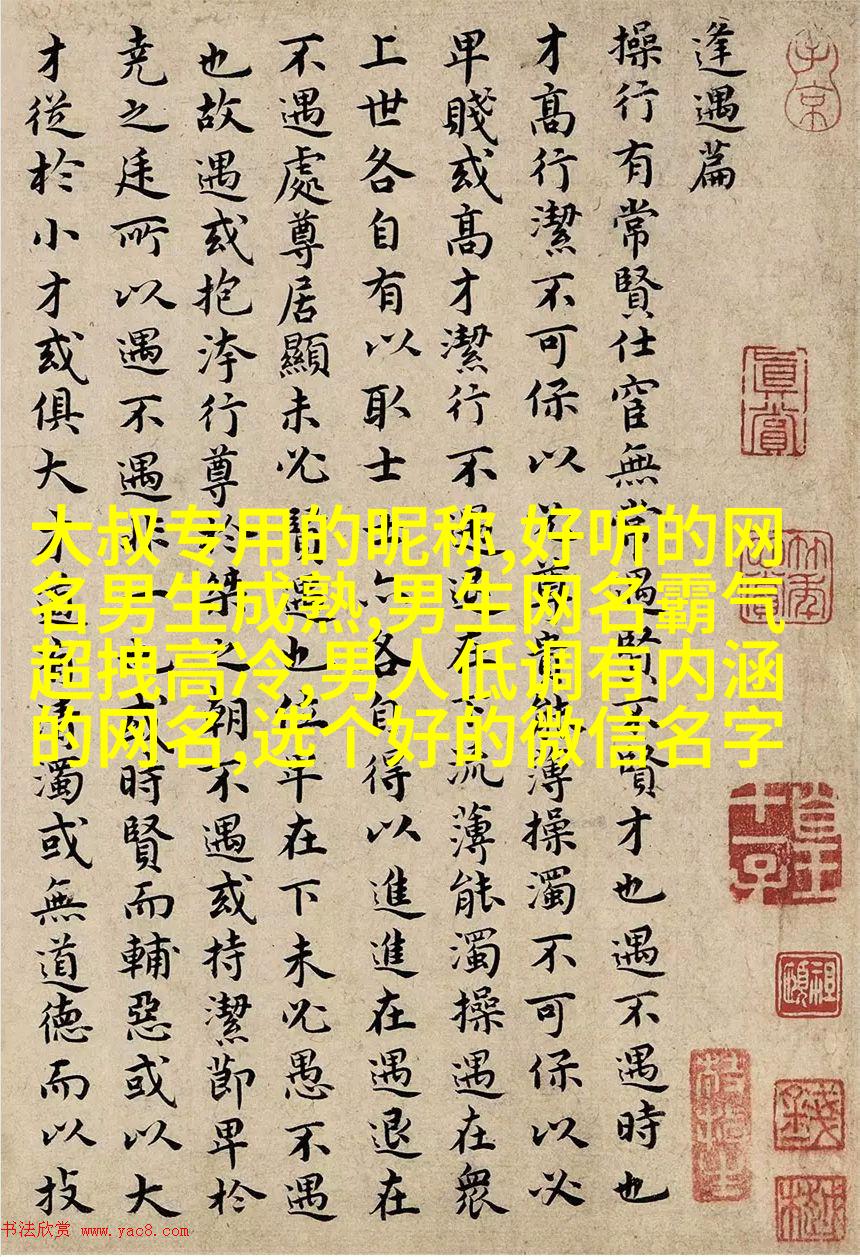 逢遇篇
操行有常賢仕宦無常遇賢不賢才也遇不遇時也
才高行潔不可保以必尊貴能薄操濁不可保以必
卑賤或高才潔行不遇退在下流薄能濁操遇在衆
上世各自有以取士士亦各自得以進進在遇退在
不遇處尊居顯未必賢遇也位卑在下未必愚不遇
也故遇或抱洿行尊於桀之朝不遇或持潔節卑於
堯之廷所以遇不遇非一也或時賢而輔惡或以大
才從於小才或俱大才道有清濁或無道德而以技
真賞
大叔专用的昵称,好听的网
名男生成熟,男生网名霸气
超拽高冷,男人低调有内涵
的网名,选个好的微信名字
书法欣赏 www.yac8.com